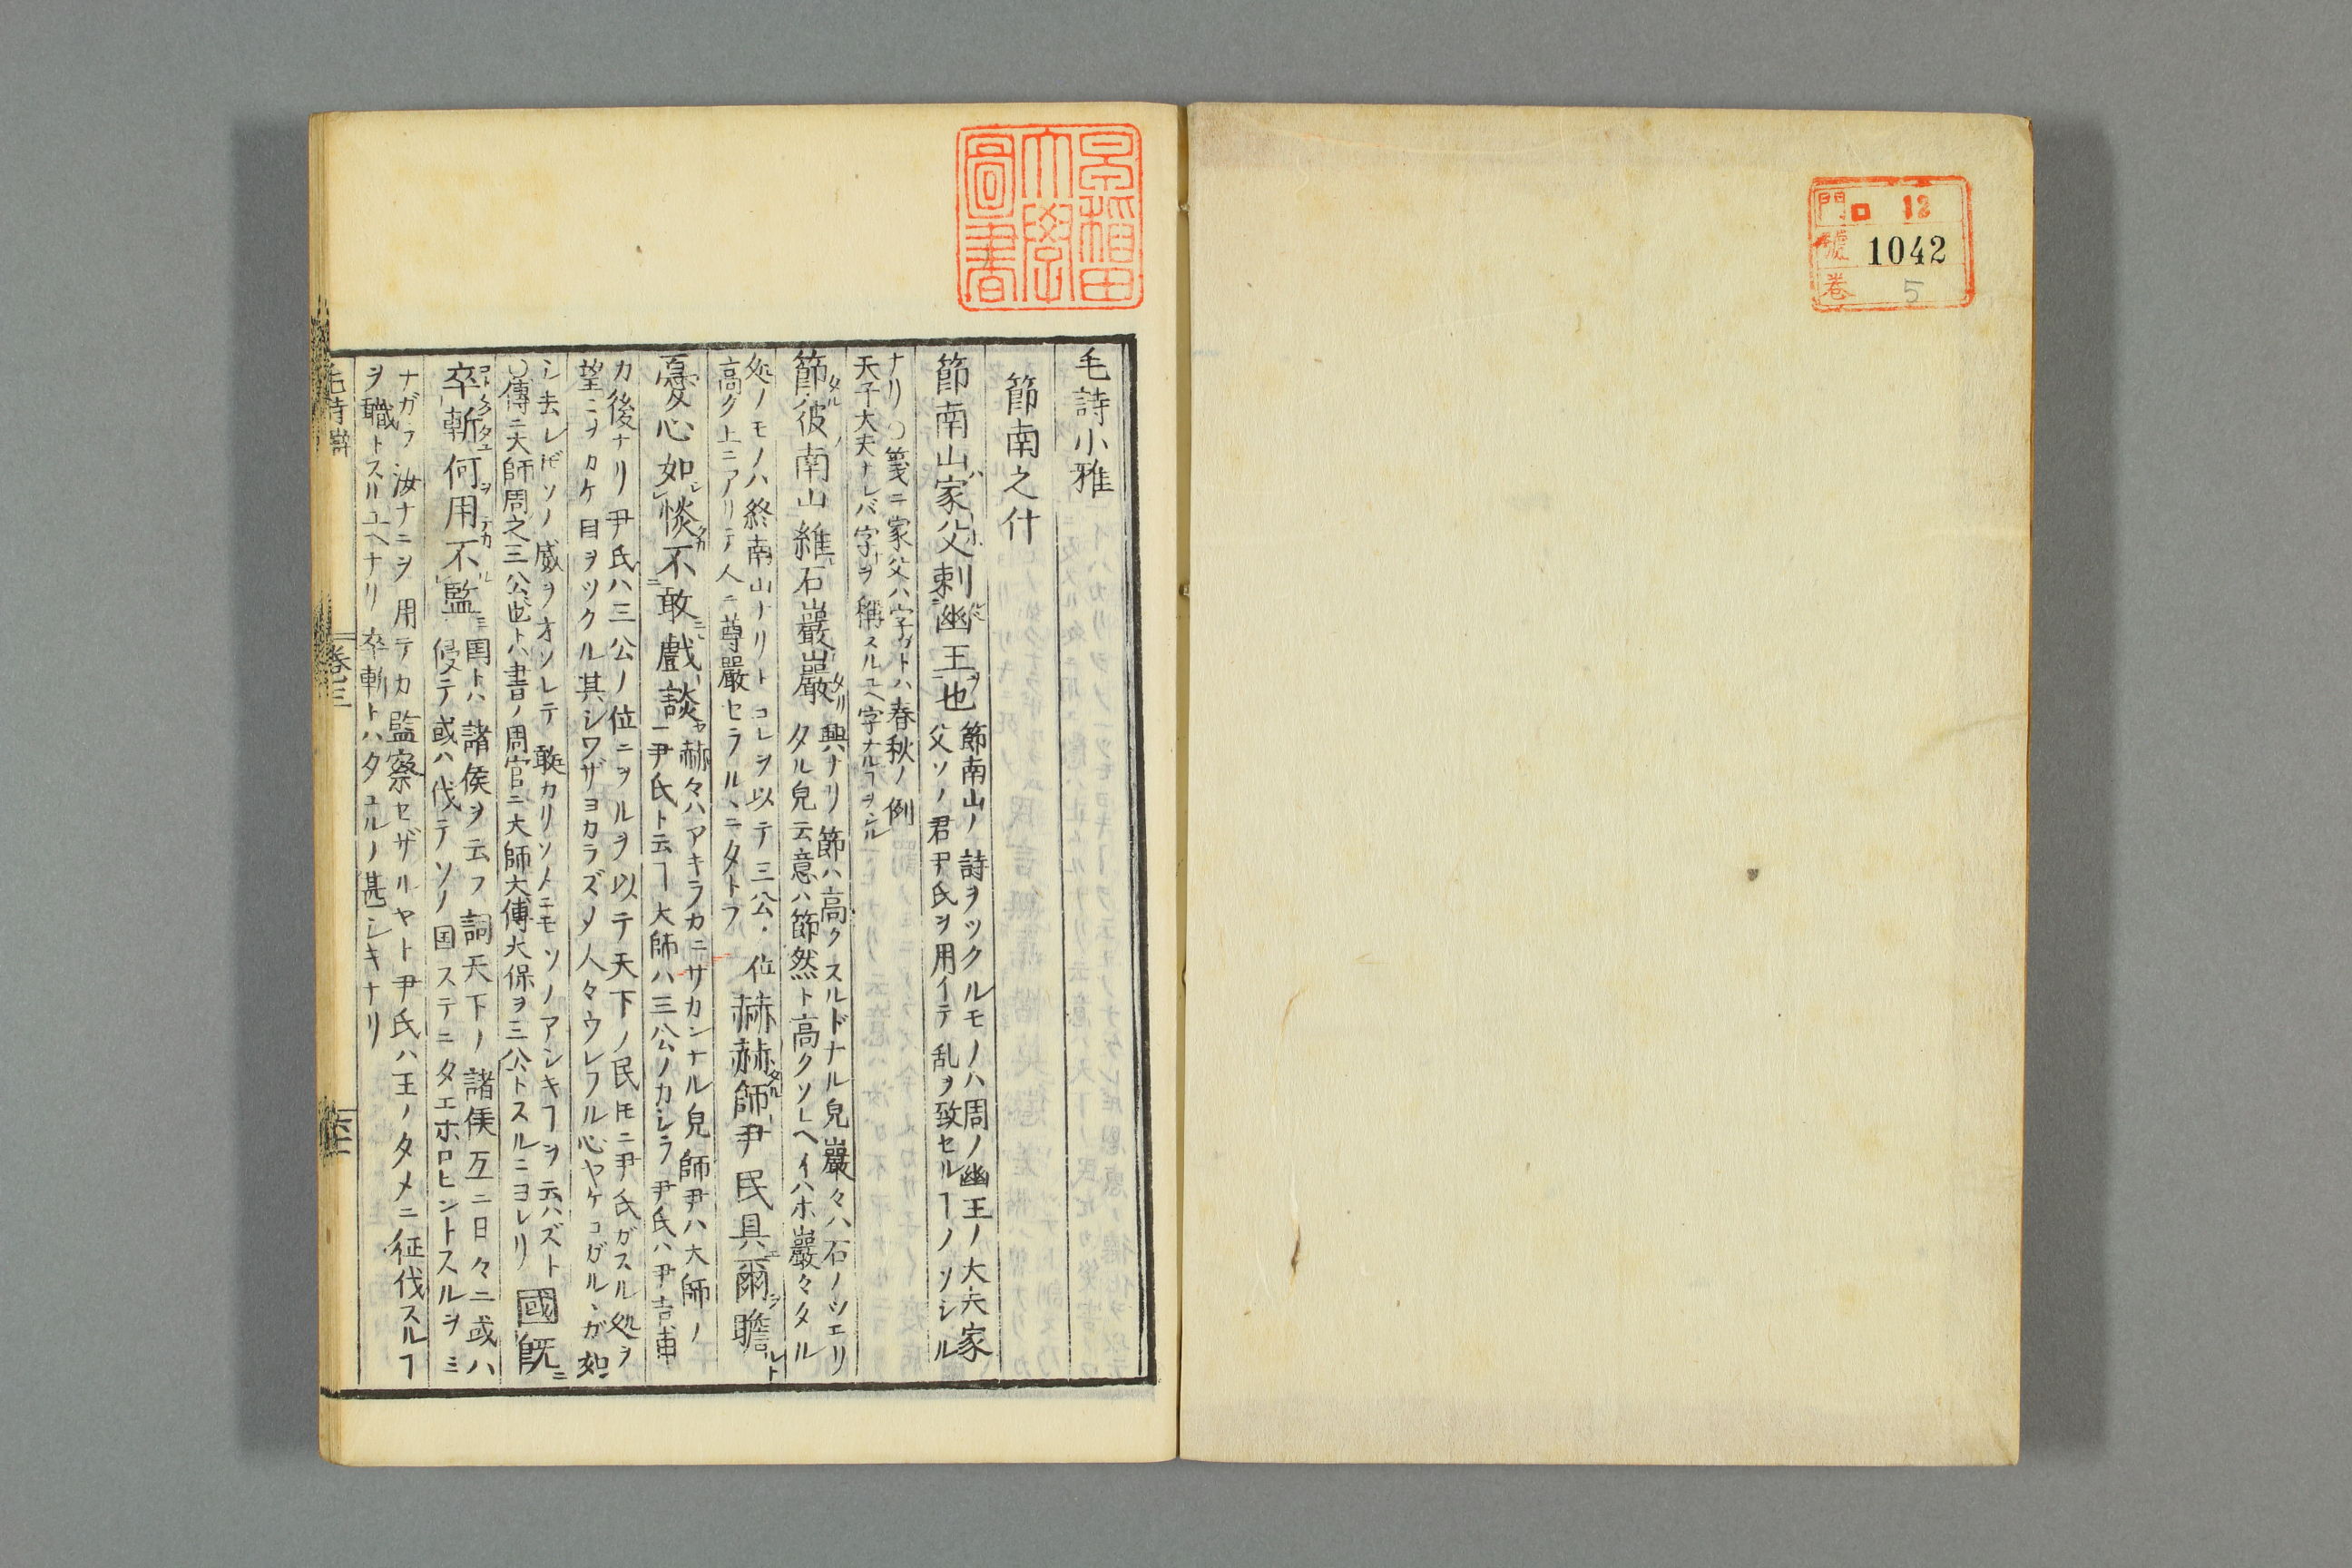 門 ロ 12
號 1042
卷 5
早稲田
大學
圖書
毛詩小雅
節南之什
節南山家父刺幽王也
節南山ノ詩ヲツクルモノハ周ノ幽王ノ大夫家
父ソノ君尹氏ヲ用イテ乱ヲ致セルヿノソシル
ナリ○箋ニ家父ハ字ガトハ春秋ノ例
天子大夫ナレバ字ヲ稱スルユヘ字ナルヿヲシル
節彼南山維石巖巖
興ナリ節ハ高クスルドナル皃巖々ハ石ノツエリ
タル皃云意ハ節然ト高クソレヘイハホ巖々タル
処ノモノハ終南山ナリトコレヲ以テ三公ノ位
高グ上ニアリテ人ニ尊嚴セラルヽニタトフ
赫赫師尹民具爾瞻
憂心如惔不敢戲談
赫々ハアキラカニサカンナル皃師尹ハ大師ノ
尹氏ト云ヿ大師ハ三公ノカシラ尹氏ハ尹吉甫
カ後ナリ尹氏ハ三公ノ位ニヲルヲ以テ天下ノ民ㇳモニ尹氏ガスル処ヲ
望ニヲカケ目ヲツクル其シワザヨカラズメ人々ウレフル心ヤケコガルヽガ如
シ去レㇳ゙モソノ威ヲオソレテ敢カリソメニモソノアシキヿヲ云ハズト
○傳ニ大師周之三公也トハ書ノ周官ニ大師大傅大保ヲ三公トスルニヨレリ
國既
卒斬何用不監
国トハ諸侯ヲ云フ詞天下ノ諸侯互ニ日々ニ或ハ
侵テ或ハ伐テソノ国ステニタエホロヒントスルヲミ
ナガラ汝ナニヲ用テカ監察セザルヤト尹氏ハ王ノタメニ征伐スルヿ
ヲ職トスルユヘナリ卒斬トハタユルノ甚シキナリ
卷三